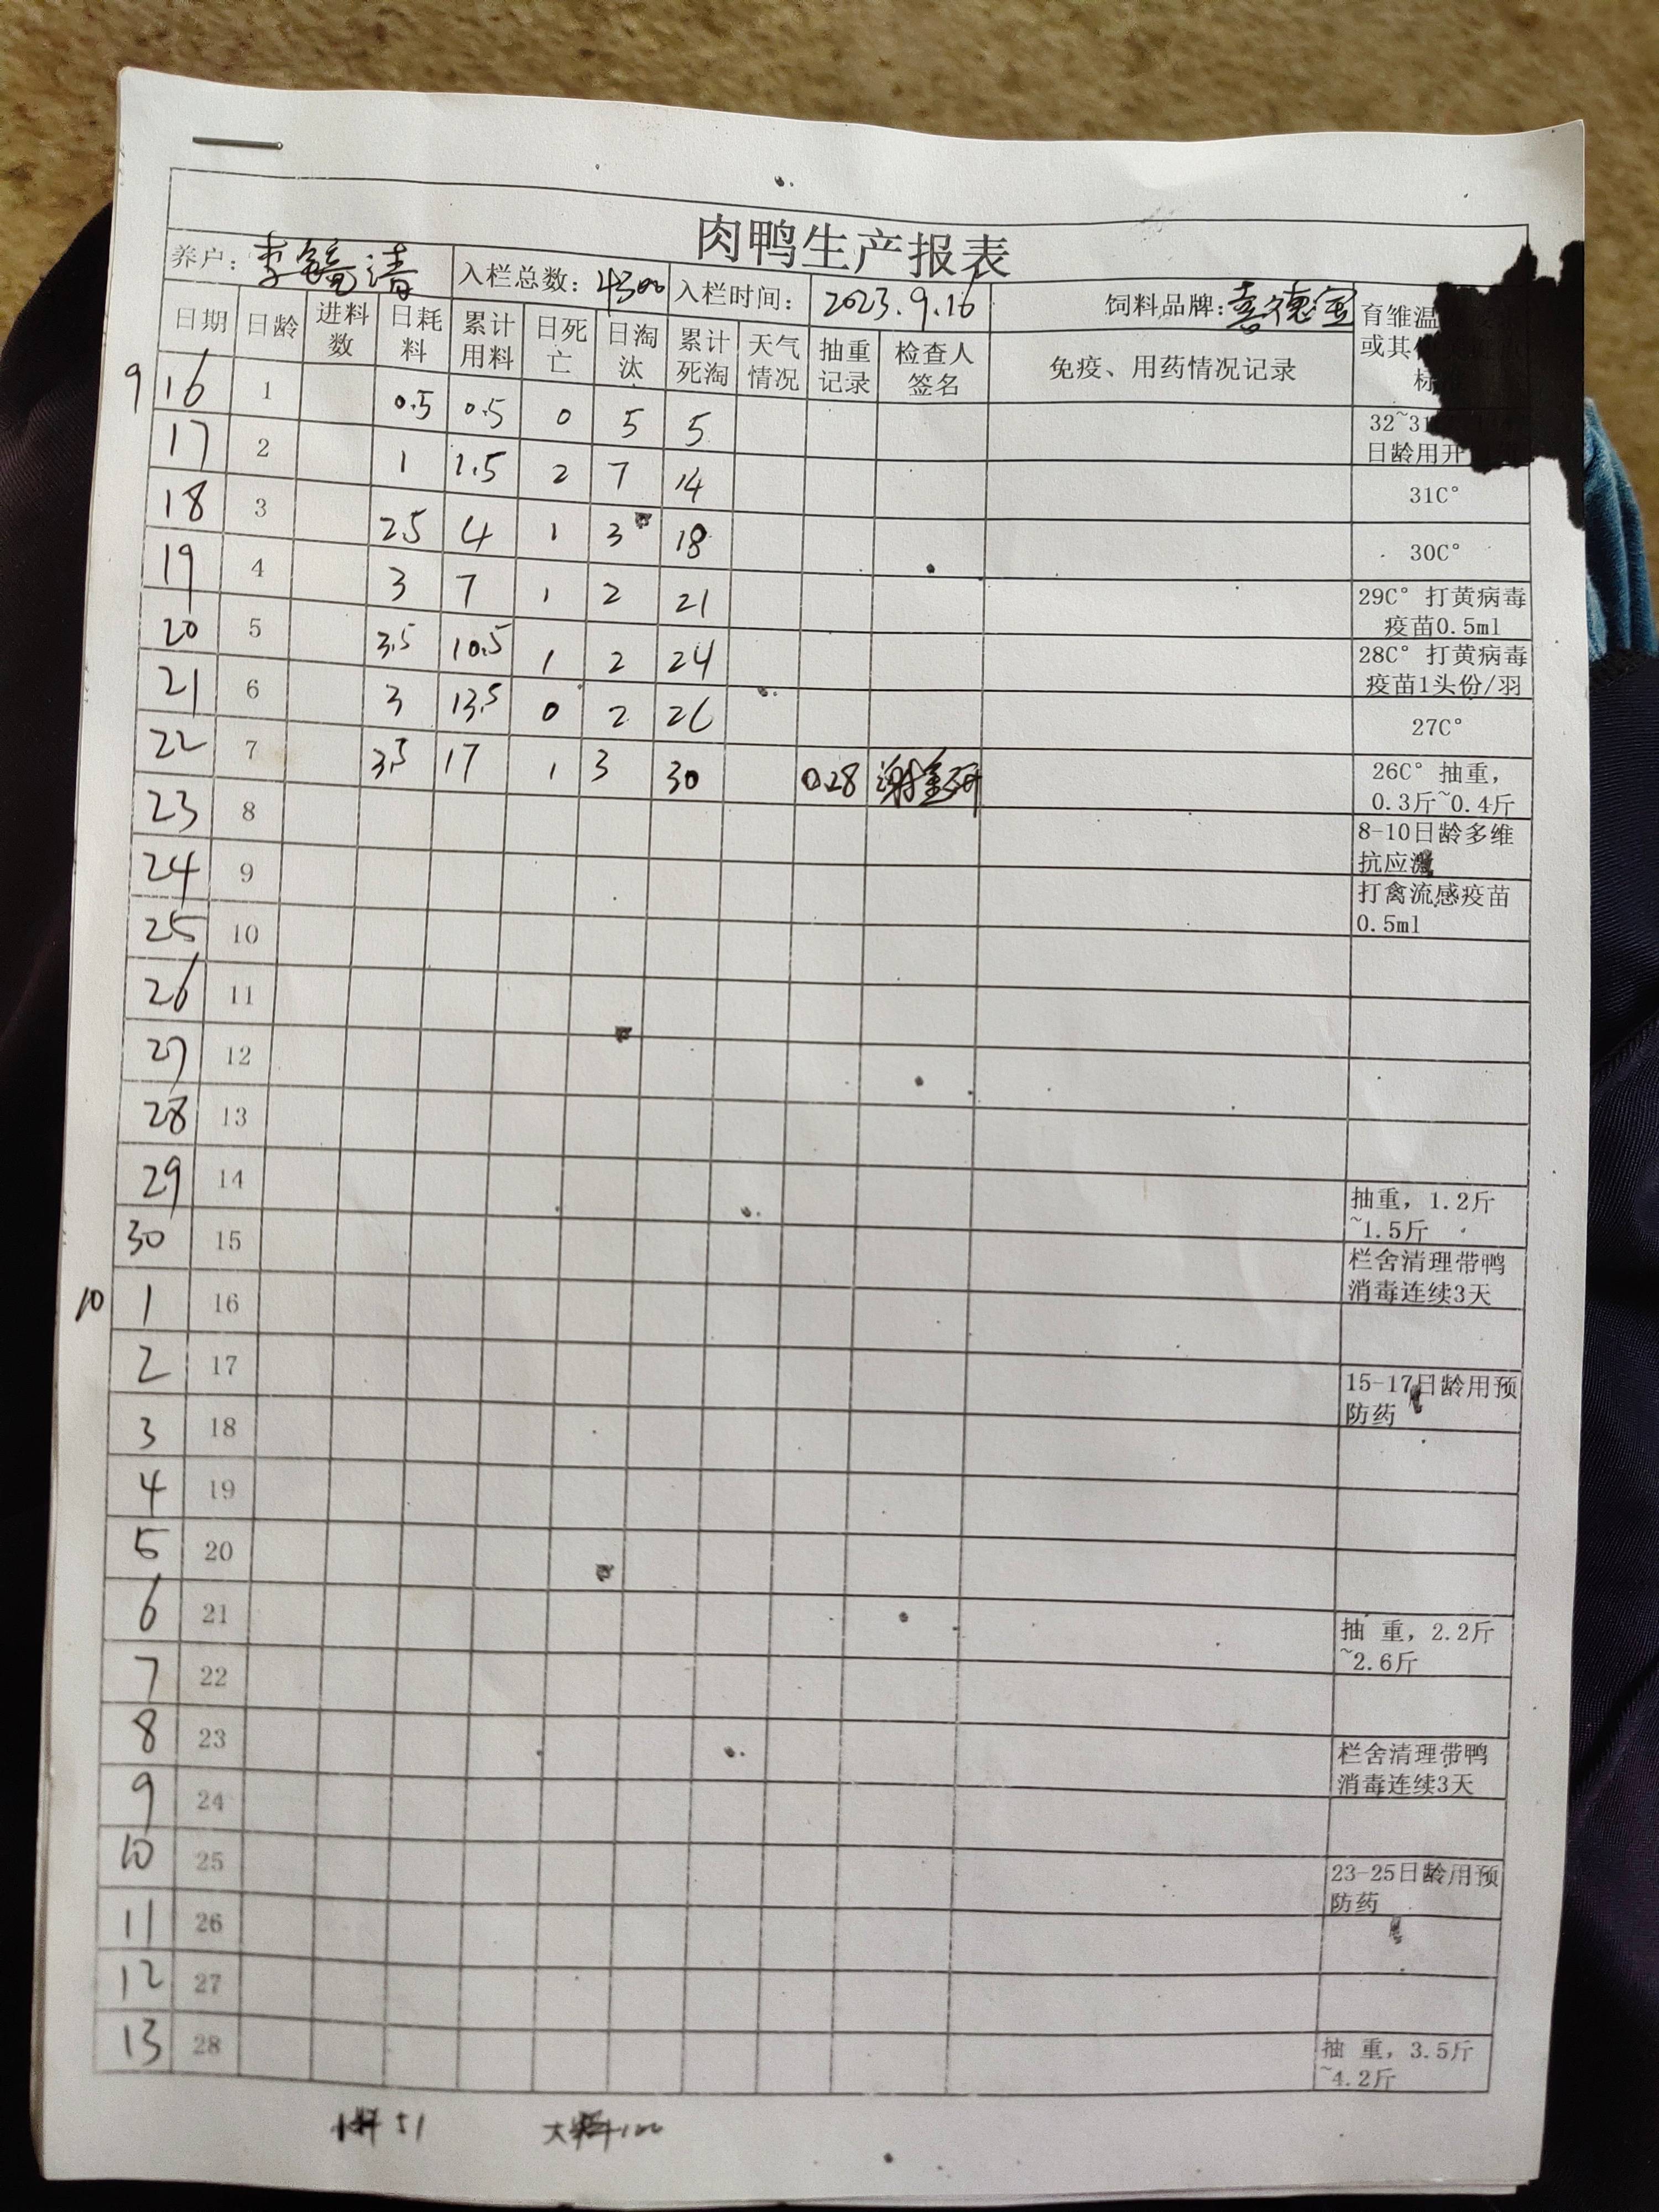 肉鸭生产报表
养户: 李 清 入栏总数: 4300 入栏时间: 2023.9.16 饲料品牌: 喜德宝 育雏温
日期 日龄 进料数 日耗料 累计用料 日死亡 日淘汰 累计死淘 天气情况 抽重记录 检查人签名 免疫、用药情况记录 或其 标
9 16 1 0.5 0.5 0 5 5 32~31 日龄用开
17 2 1 1.5 2 7 14 31C°
18 3 2.5 4 1 3 18 30C°
19 4 3 7 1 2 21 29C° 打黄病毒疫苗0.5ml
20 5 3.5 10.5 1 2 24 28C° 打黄病毒疫苗1头份/羽
21 6 3 13.5 0 2 26 27C°
22 7 3.5 17 1 3 30 0.28 谢 26C° 抽重，0.3斤~0.4斤
23 8 8-10日龄多维抗应激
24 9 打禽流感疫苗0.5ml
25 10
26 11
27 12
28 13
29 14 抽重，1.2斤~1.5斤
30 15 栏舍清理带鸭消毒连续3天
10 1 16
2 17 15-17日龄用预防药
3 18
4 19
5 20
6 21 抽 重，2.2斤~2.6斤
7 22
8 23 栏舍清理带鸭消毒连续3天
9 24
10 25 23-25日龄用预防药
11 26
12 27
13 28 抽 重，3.5斤~4.2斤
51 大料100